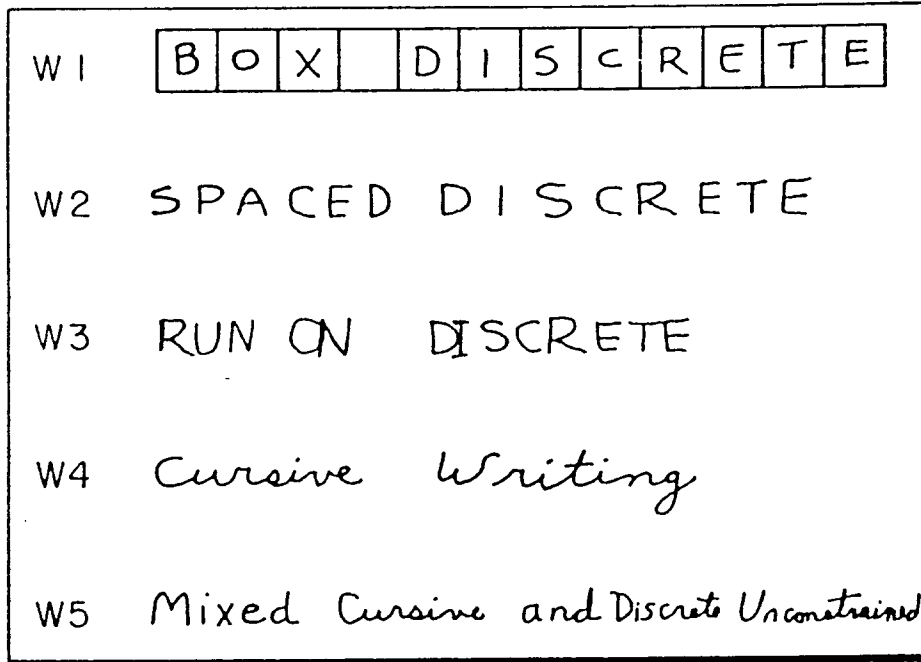 W1 BOX DISCRETE
W2 SPACED DISCRETE
W3 RUN ON DISCRETE
W4 Cursive Writing
W5 Mixed Cursive and Discrete Unconstrained